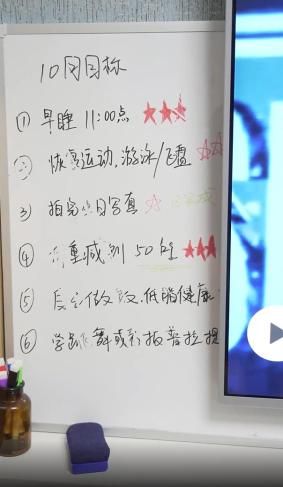 10月目标
① 早睡 11:00点
② 恢复运动,游泳/飞盘
③ 拍完 月写真 完成
④ 体重减到 50kg
⑤ 做饭.低脂健康
⑥ 学 舞或 报普拉提